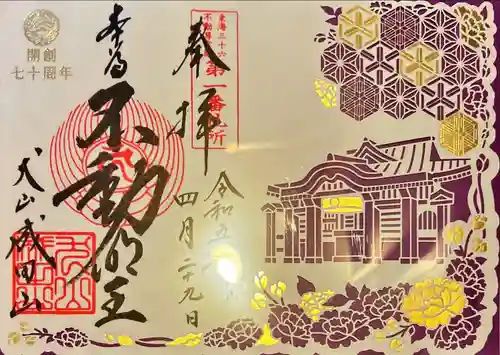 東海三十六
不動尊
第一番札所
奉拝
令和五
四月二十九日
本尊
不動明王
犬山成田山
開創
七十周年